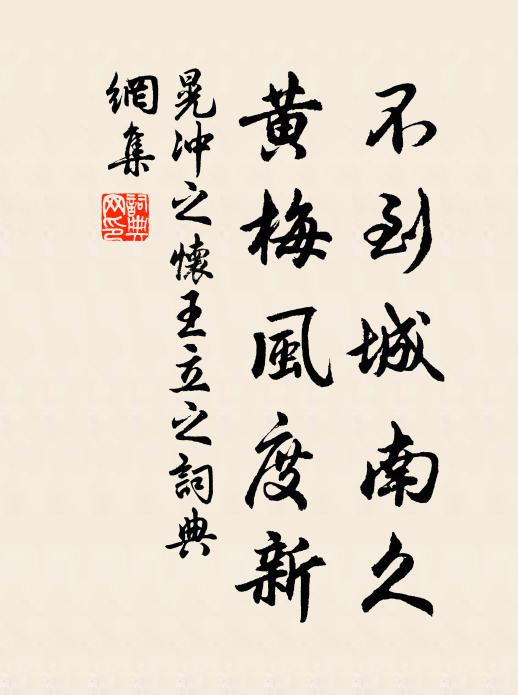 不到城南久
黄梅風度新
晃沖之懷王立之詞典
網集
詞典
网印